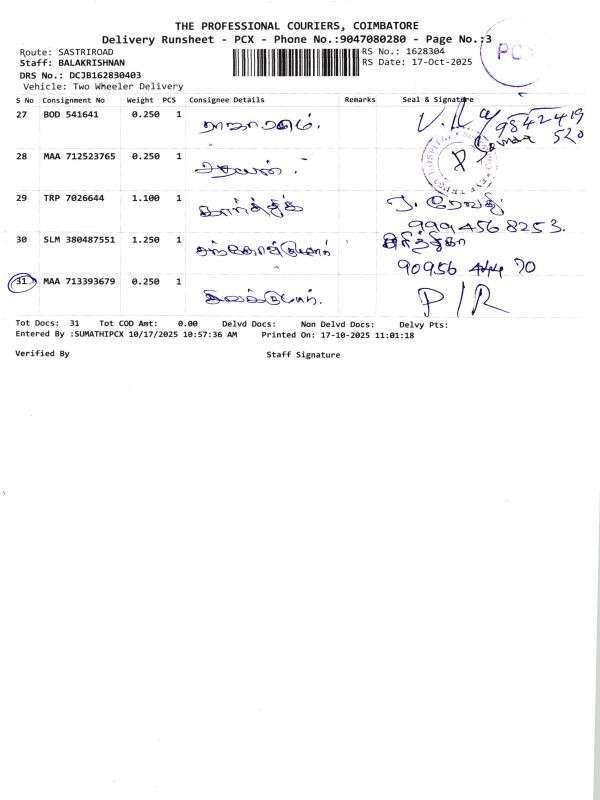 THE PROFESSIONAL COURIERS, COIMBATORE
Delivery Runsheet - PCX - Phone No.:9047080280 - Page No.:3
PCX
Route: SASTRIROAD
RS No.: 1628304
Staff: BALAKRISHNAN
RS Date: 17-Oct-2025
DRS No.: DCJB162830403
Vehicle: Two Wheeler Delivery
S No Consignment No Weight PCS Consignee Details Remarks Seal & Signature
27 BOD 541641 0.250 1
9842419
520
28 MAA 712523765 0.250 1
29 TRP 7026644 1.100 1 கார்த்திக்
999 456 8253.
30 SLM 380487551 1.250 1
90956 70
31 MAA 713393679 0.250 1 P/R
Tot Docs: 31 Tot COD Amt: 0.00 Delvd Docs: Non Delvd Docs: Delvy Pts:
Entered By :SUMATHIPCX 10/17/2025 10:57:36 AM Printed On: 17-10-2025 11:01:18
Verified By Staff Signature